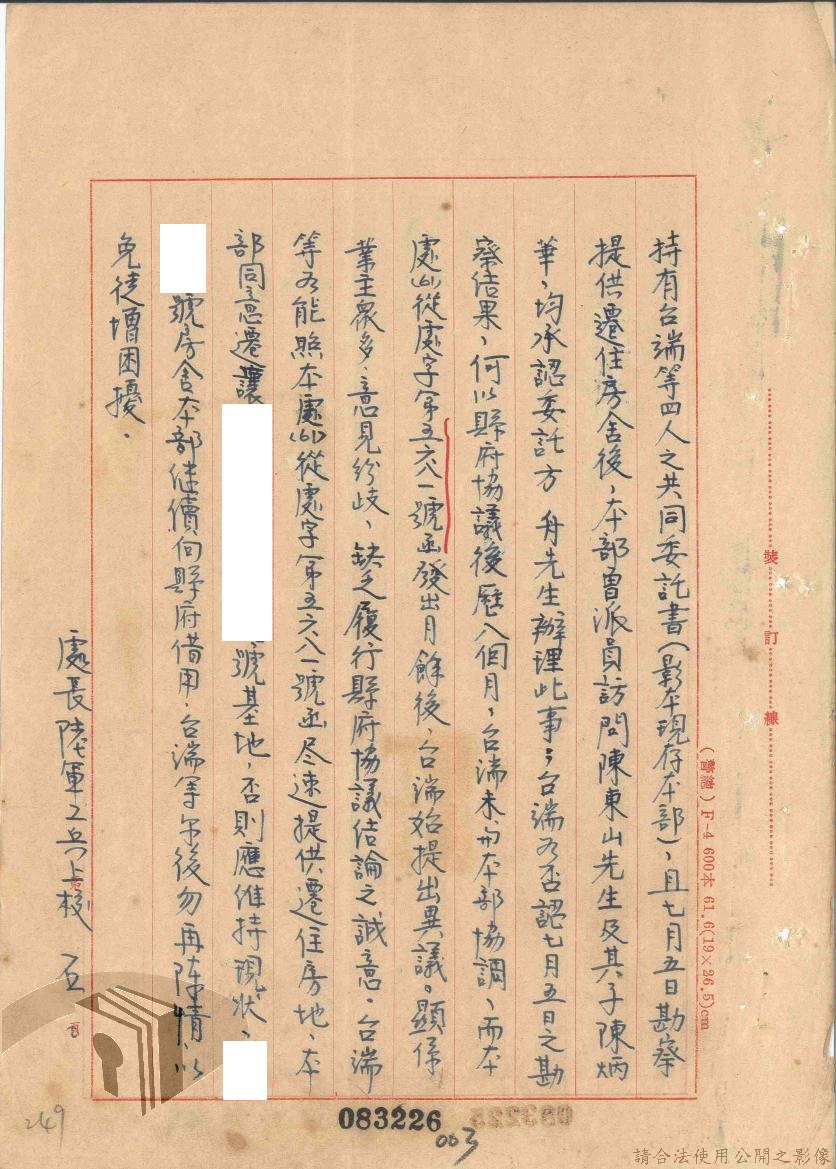 持有台端等四人之共同委託書(影本現存本部)，且七月五日勘察
提供遷住房舍後，本部曾派員訪問陳東山先生及其子陳炳
華，均承認委託方 舟先生辦理此事；台端若否認七月五日之勘
察結果，何以縣府協議後歷八個月，台端未向本部協調，而本
處(61)從處字第五六八一號函發出月餘後，台端始提出異議。顯係
業主眾多，意見紛歧，缺乏履行縣府協議結論之誠意。台端
等若能照本處(61)從處字第五六八一號函尽速提供遷住房地，本
部同意遷讓 號基地，否則應維持現狀，
號房舍本部继續向縣府借用，台端等今後勿再陳情，以
免徒增困擾。
處長陸軍工兵上校 石
裝
訂
線
F-4 600本 61.6(19×26.5)cm
083226
003
249
請合法使用公開之影像